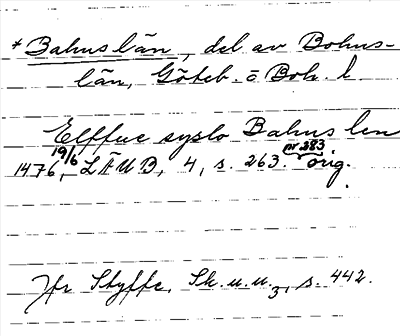 * Bahus län, del av Bohus-
län, Göteb. o Boh. l.
Elffue syslo Bahus len
1476 19/6, LÄUB, 4, s. 263. nr 283 orig.
Jfr Styffe, Sk. u. u. 3, s. 442.